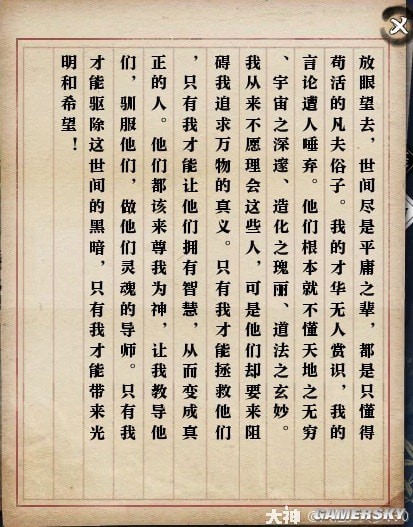 放眼望去，世间尽是平庸之辈，都是只懂得
苟活的凡夫俗子。我的才华无人赏识，我的
言论遭人唾弃。他们根本就不懂天地之无穷
、宇宙之深邃、造化之瑰丽、道法之玄妙。
我从来不愿理会这些人，可是他们却要来阻
碍我追求万物的真义。只有我才能拯救他们
，只有我才能让他们拥有智慧，从而变成真
正的人。他们都该来尊我为神，让我教导他
们，驯服他们，做他们灵魂的导师。只有我
才能驱除这世间的黑暗，只有我才能带来光
明和希望！
大神
GAMERSKY